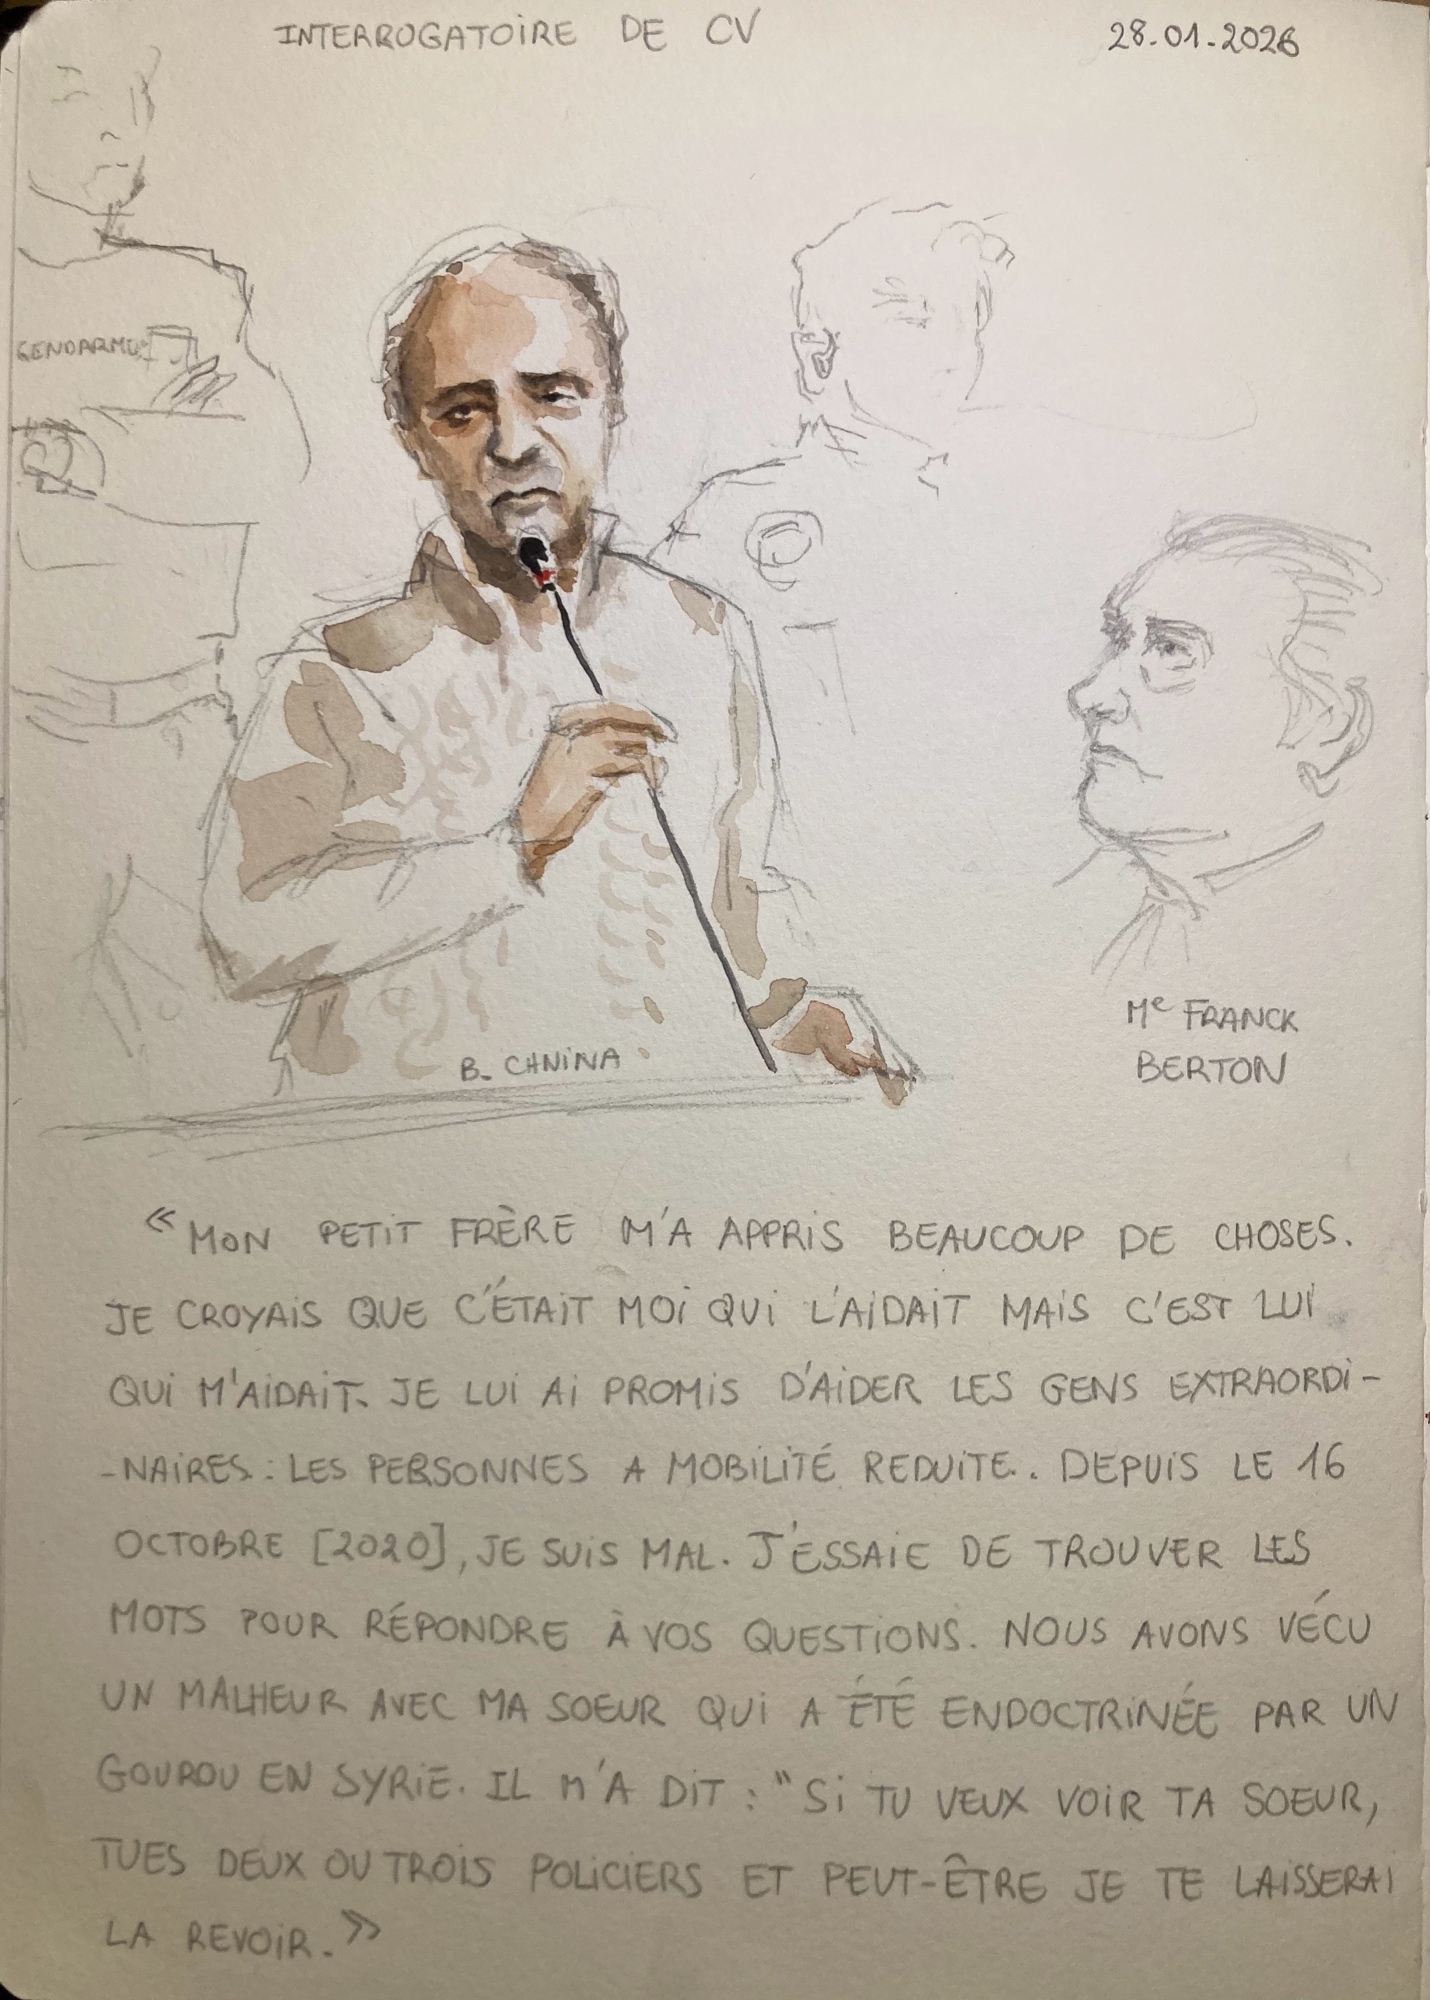 INTERROGATOIRE DE CV
28.01.2026
GENDARMERIE
B. CHNINA
Me FRANCK
BERTON
« MON PETIT FRÈRE M'A APPRIS BEAUCOUP DE CHOSES.
JE CROYAIS QUE C'ÉTAIT MOI QUI L'AIDAIT MAIS C'EST LUI
QUI M'AIDAIT. JE LUI AI PROMIS D'AIDER LES GENS EXTRAORDI-
-NAIRES : LES PERSONNES A MOBILITÉ REDUITE. DEPUIS LE 16
OCTOBRE [2020], JE SUIS MAL. J'ESSAIE DE TROUVER LES
MOTS POUR RÉPONDRE À VOS QUESTIONS. NOUS AVONS VÉCU
UN MALHEUR AVEC MA SOEUR QUI A ÉTÉ ENDOCTRINÉE PAR UN
GOUROU EN SYRIE. IL M'A DIT : "SI TU VEUX VOIR TA SOEUR,
TUES DEUX OU TROIS POLICIERS ET PEUT-ÊTRE JE TE LAISSERAI
LA REVOIR. »